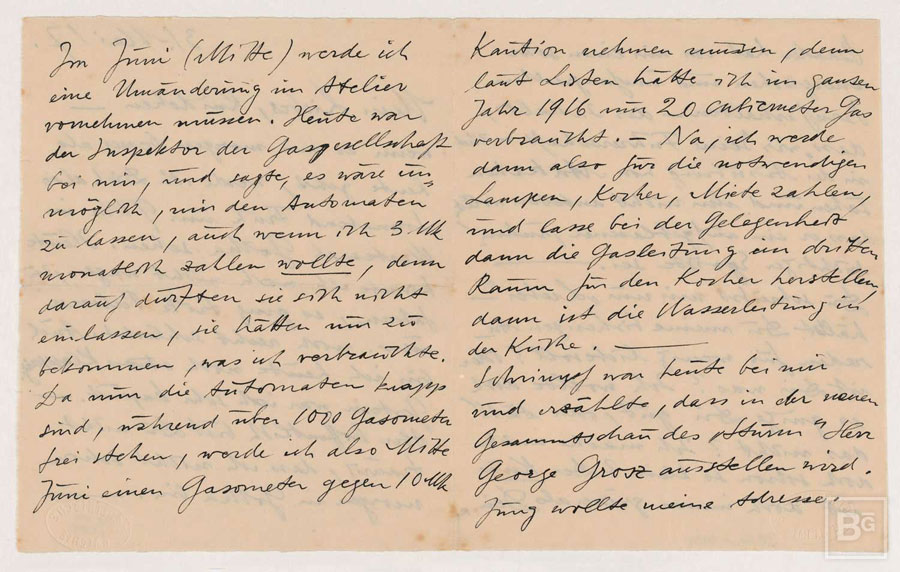 Im Juni (Mitte) werde ich
eine Umänderung im Atelier
vornehmen müssen. Heute war
der Inspektor der Gasgesellschaft
bei mir, und sagte, es wäre un=
möglich, mir den Automaten
zu lassen, auch wenn ich 3 Mk
monatlich zahlen wollte, denn
darauf dürften sie sich nicht
einlassen, sie hätten nur zu
bekommen, was ich verbrauchte.
Da nun die Automaten knapp
sind, während über 1000 Gasometer
frei stehen, werde ich also Mitte
Juni einen Gasometer gegen 10 Mk
Kaution nehmen müssen, denn
laut Listen hätte ich im ganzen
Jahr 1916 nur 20 Cubicmeter Gas
verbraucht. — Na, ich werde
dann also für die notwendigen
Lampen, Kocher, Miete zahlen,
und lasse bei der Gelegenheit
dann die Gasleitung im dritten
Raum für den Kocher herstellen,
dann ist die Wasserleitung in
der Küche. —
Schrimpf war heute bei mir
und erzählte, dass in der neuen
Gesammtschau des „Sturm" Herr
George Grosz ausstellen wird.
Jung wollte meine Adresse.
BG